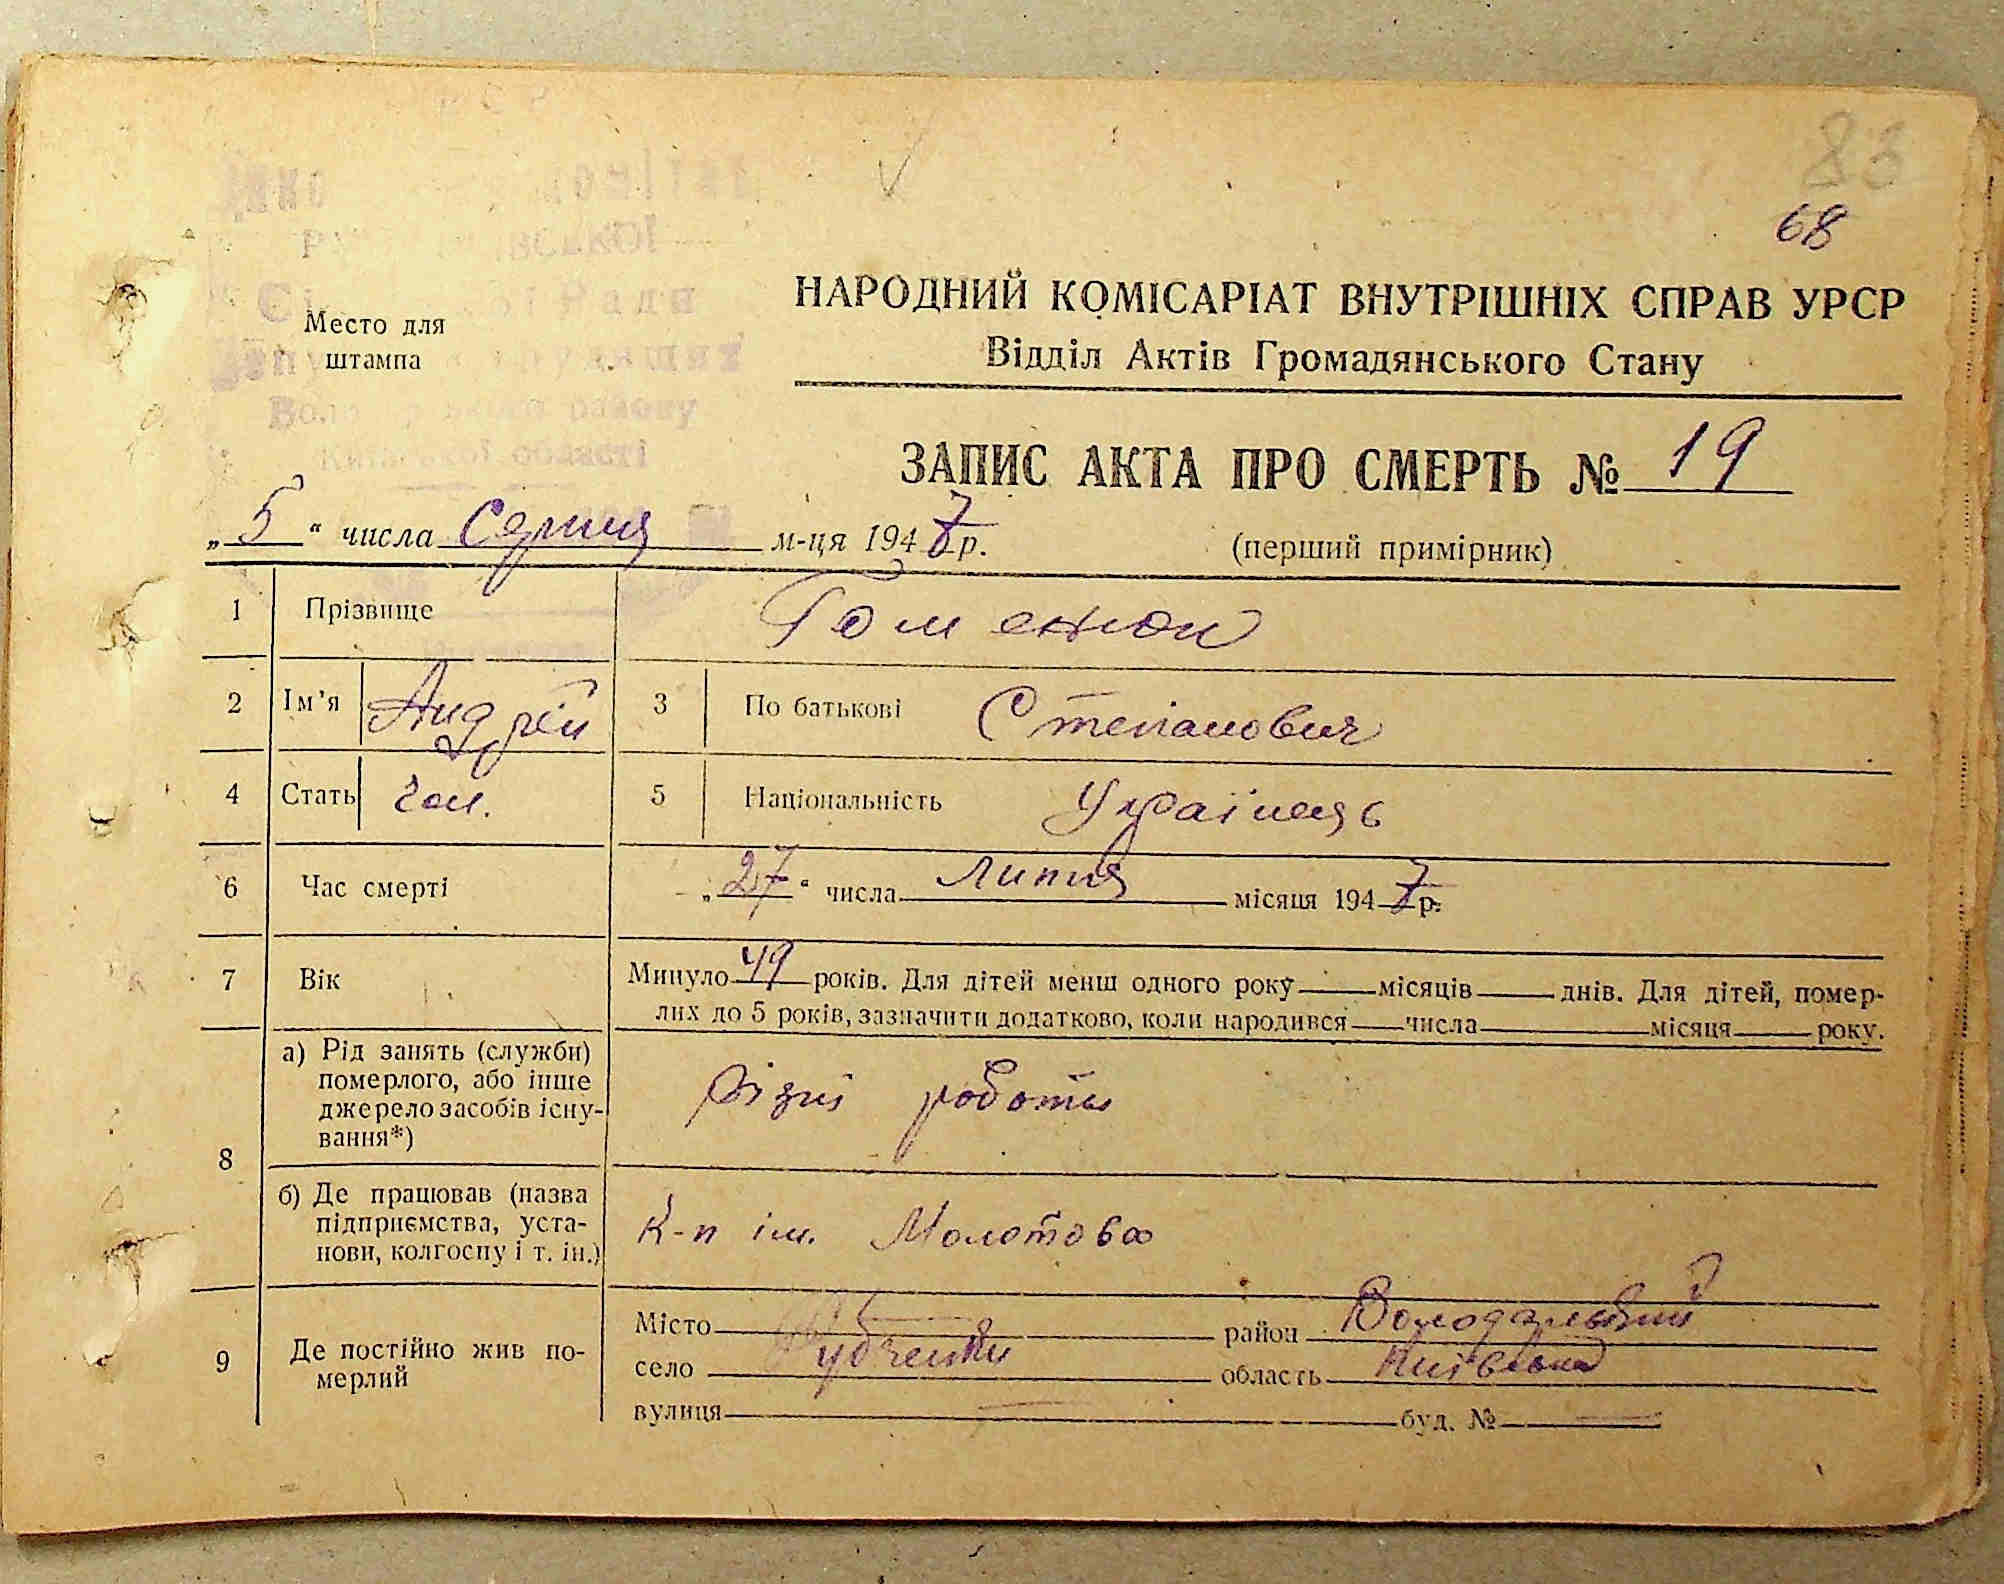 83
68
НАРОДНИЙ КОМІСАРІАТ ВНУТРІШНІХ СПРАВ УРСР
Відділ Актів Громадянського Стану
Место для
штампа
області
ЗАПИС АКТА ПРО СМЕРТЬ № 19
„5“ числа Серпня м-ця 1947 р.
(перший примірник)
1 Прізвище Гоменюк
2 Ім'я Андрій 3 По батькові Степанович
4 Стать чол. 5 Національність Українець
6 Час смерті „27“ числа липня місяця 1947 р.
7 Вік Минуло 49 років. Для дітей менш одного року місяців днів. Для дітей, помер-
лих до 5 років, зазначити додатково, коли народився числа місяця року.
8 а) Рід занять (служби)
померлого, або інше
джерело засобів існу-
вання*)
різні роботи
б) Де працював (назва
підприємства, уста-
нови, колгоспу і т. ін.)
К-п ім. Молотова
9 Де постійно жив по-
мерлий
Місто район Володарський
село Рудченки область Київська
вулиця буд. №